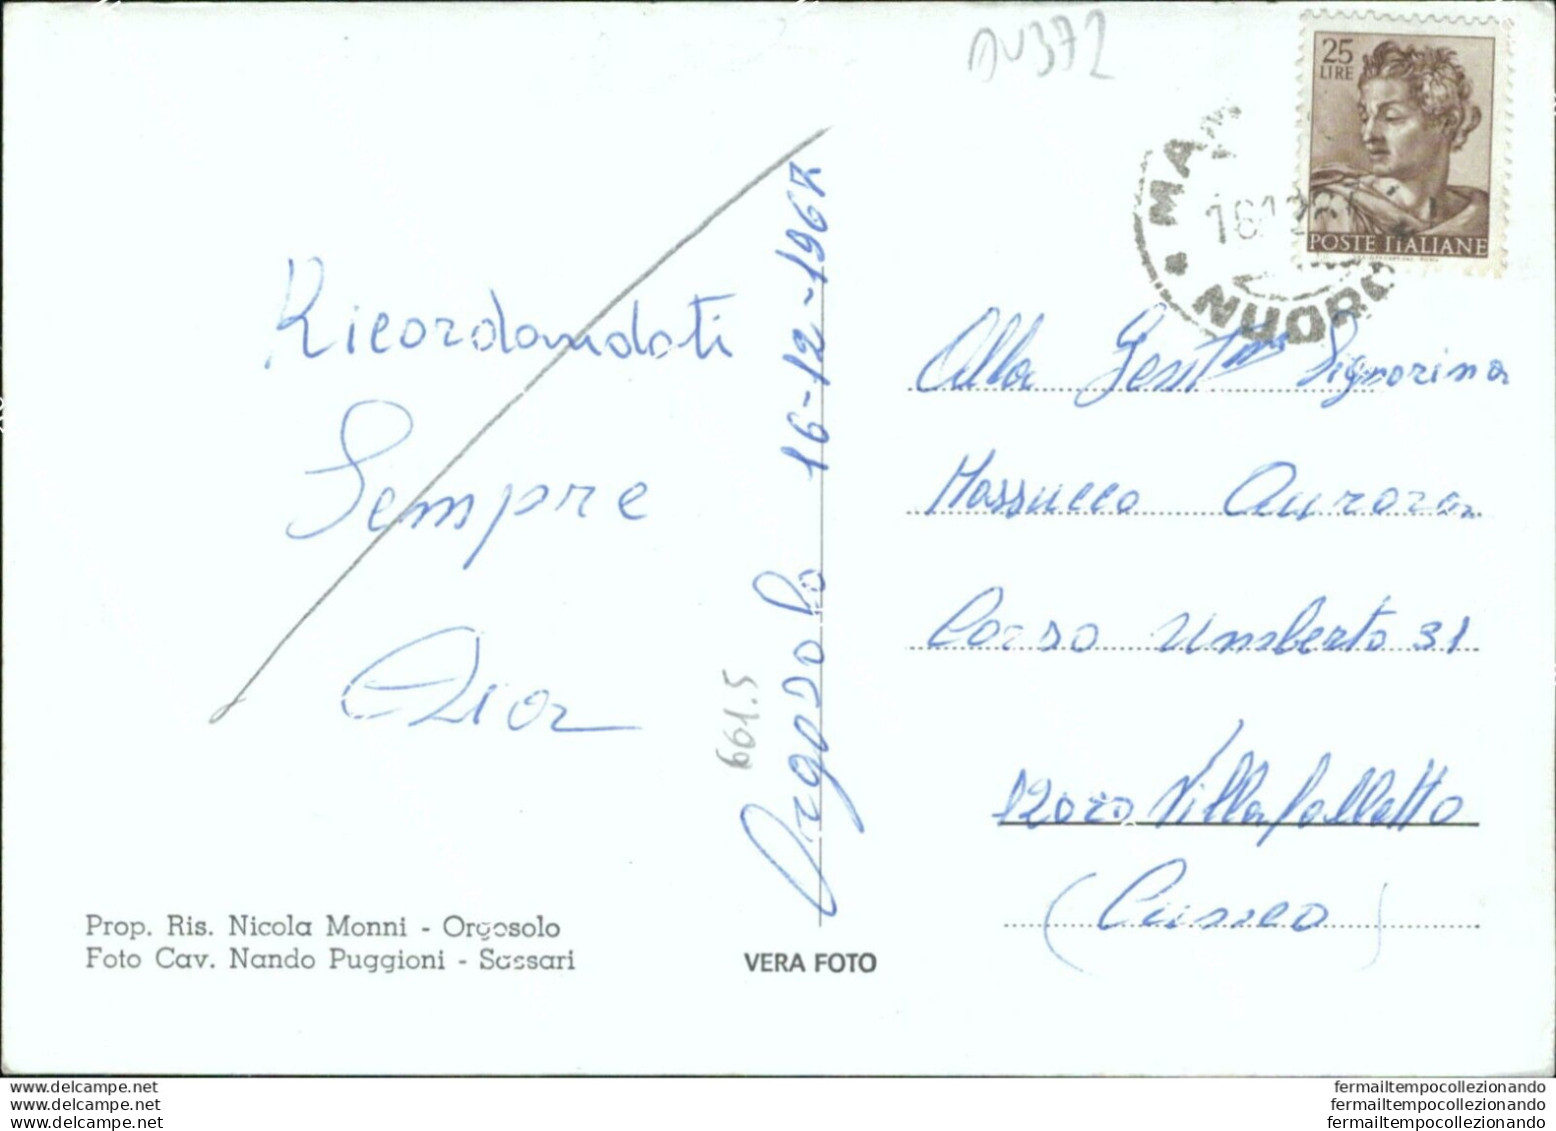 DU372
25
LIRE
POSTE ITALIANE
NUORO
Ricordandoti
Sempre
Orgosolo 16-12-1967
661.5
Alla Gent.ma Signorina
Massucco Aurora
Corso Umberto 31
12020 Villafalletto
(Cuneo)
Prop. Ris. Nicola Monni - Orgosolo
Foto Cav. Nando Puggioni - Sassari
VERA FOTO
www.delcampe.net
www.delcampe.net
www.delcampe.net
fermailtempocollezionando
fermailtempocollezionando
fermailtempocollezionando